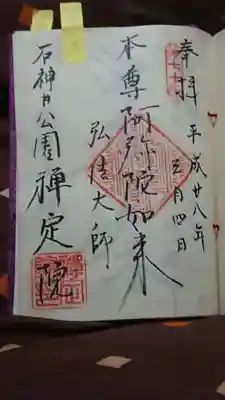 奉拝
平成廿八年
三月四日
本尊阿弥陀如来
弘法大師
石神井公園
禅定院